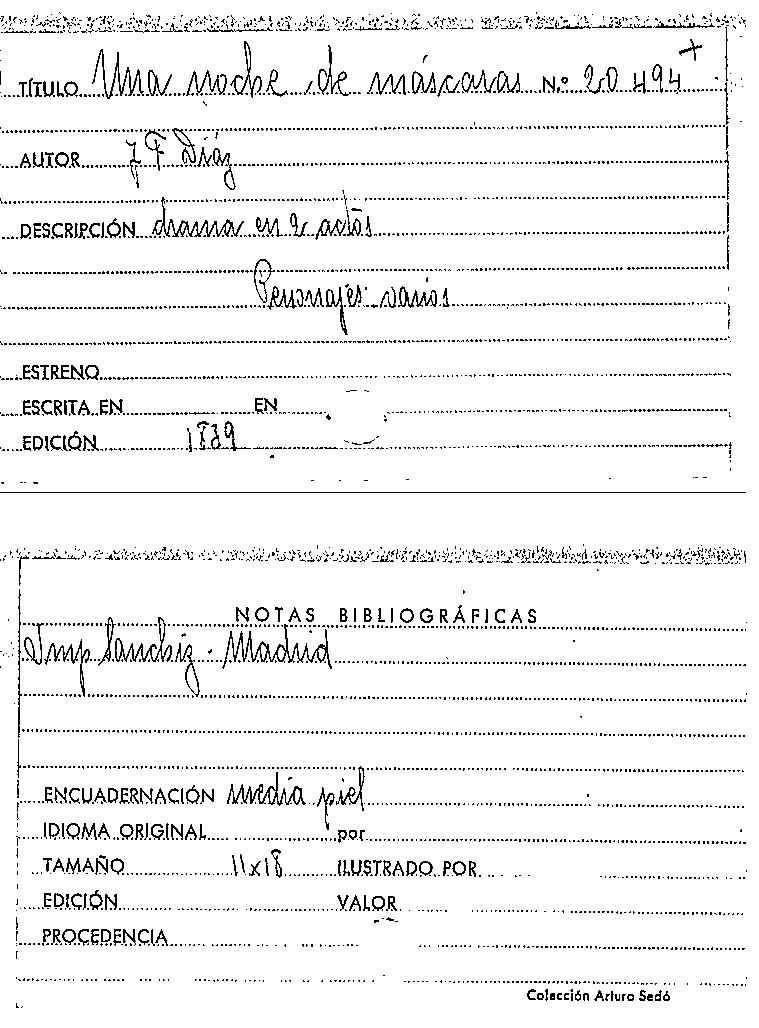 TÍTULO Una noche de máscaras N.º 20494 +
AUTOR J F Diáz
DESCRIPCIÓN drama en 2 actos
Personajes varios
ESTRENO
ESCRITA EN EN
EDICIÓN 1839
NOTAS BIBLIOGRÁFICAS
Imp Sanchiz - Madrid
ENCUADERNACIÓN media piel
IDIOMA ORIGINAL por
TAMAÑO 11x18 ILUSTRADO POR
EDICIÓN VALOR
PROCEDENCIA
Colección Arturo Sedó